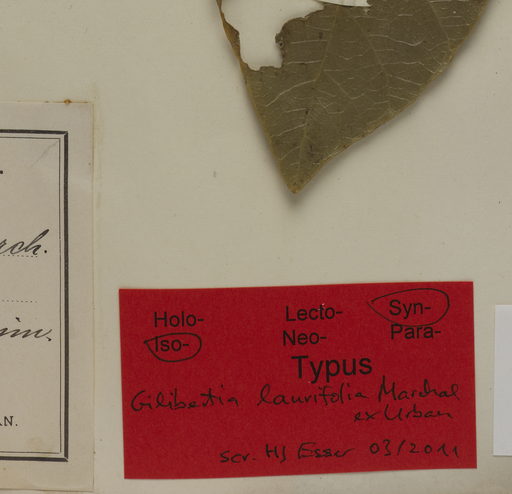 rch.
nim.
N.
Holo- Lecto- Syn-
Iso- Neo- Para-
Typus
Gilibertia laurifolia Marchal
ex Urban
scr. HJ Esser 03/2011